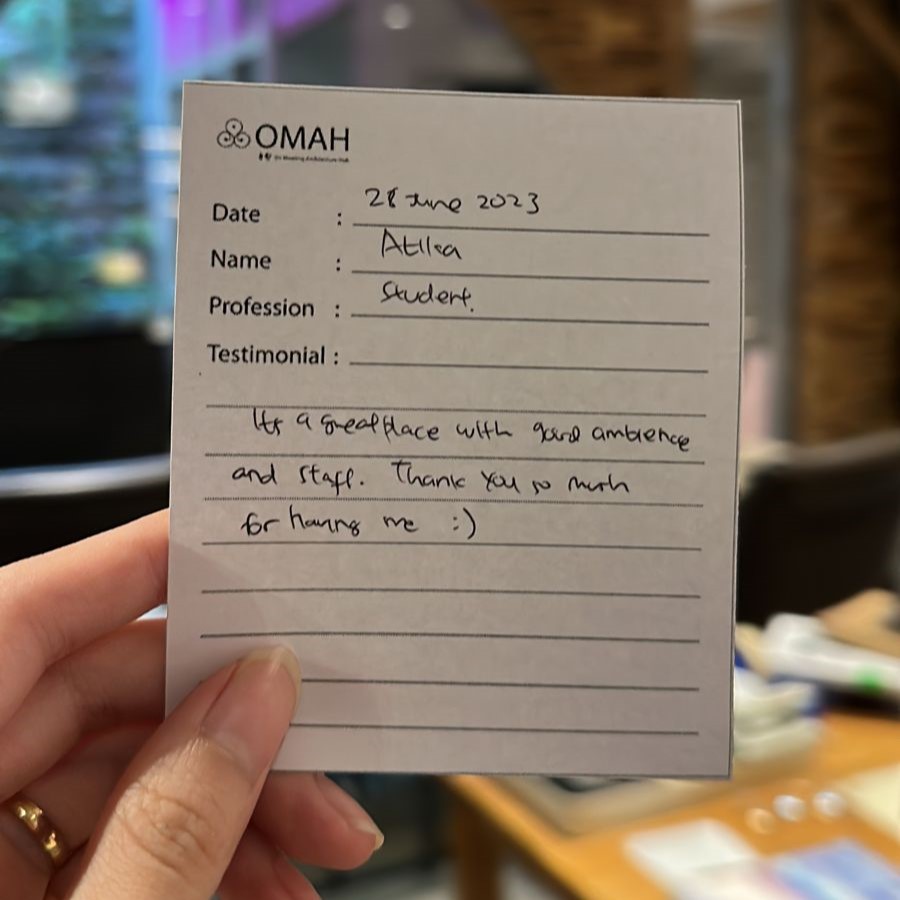 OMAH
Date : 28 June 2023
Name : Atika
Profession : Student.
Testimonial :
Its a great place with good ambience
and staff. Thank you so much
for having me :)